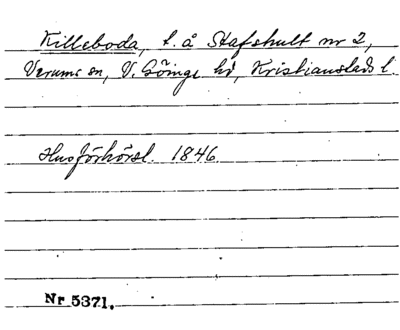 Killeboda, t. å Stafshult nr 2,
Verums sn, V. Göinge hd, Kristianstads l.
Husförhörsl. 1846.
Nr 5371.